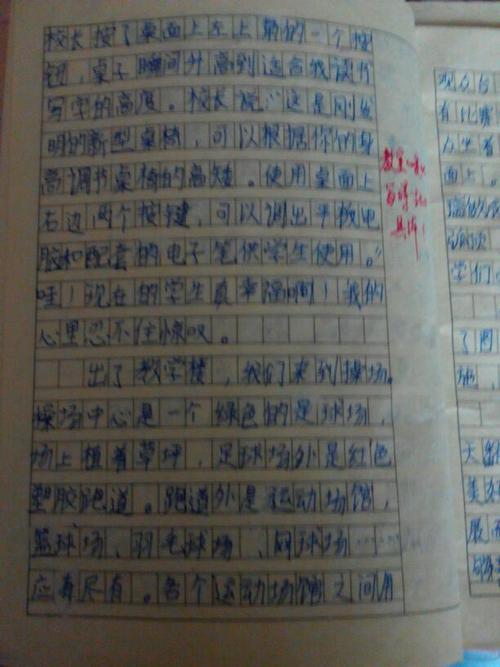 校长按了桌面上左上角的一个按
钮，桌子瞬间升高到适合我读书
写字的高度。校长说："这是刚发
明的新型桌椅，可以根据你的身
高调节桌椅的高矮。使用桌面上
右边两个按键，可以调出平板电
脑和配套的电子笔供学生使用。"
哇！现在的学生真幸福啊！我的
心里忍不住惊叹。
出了教学楼，我们来到操场。
操场中心是一个绿色的足球场，
场上植着草坪，足球场外是红色
塑胶跑道。跑道外是运动场馆，
篮球场、羽毛球场、网球场……
应有尽有。各个运动场馆之间用
教室
写得
具体！
观众台
有比赛
众坐着
面上。
学们
了图
地，
天
美
展